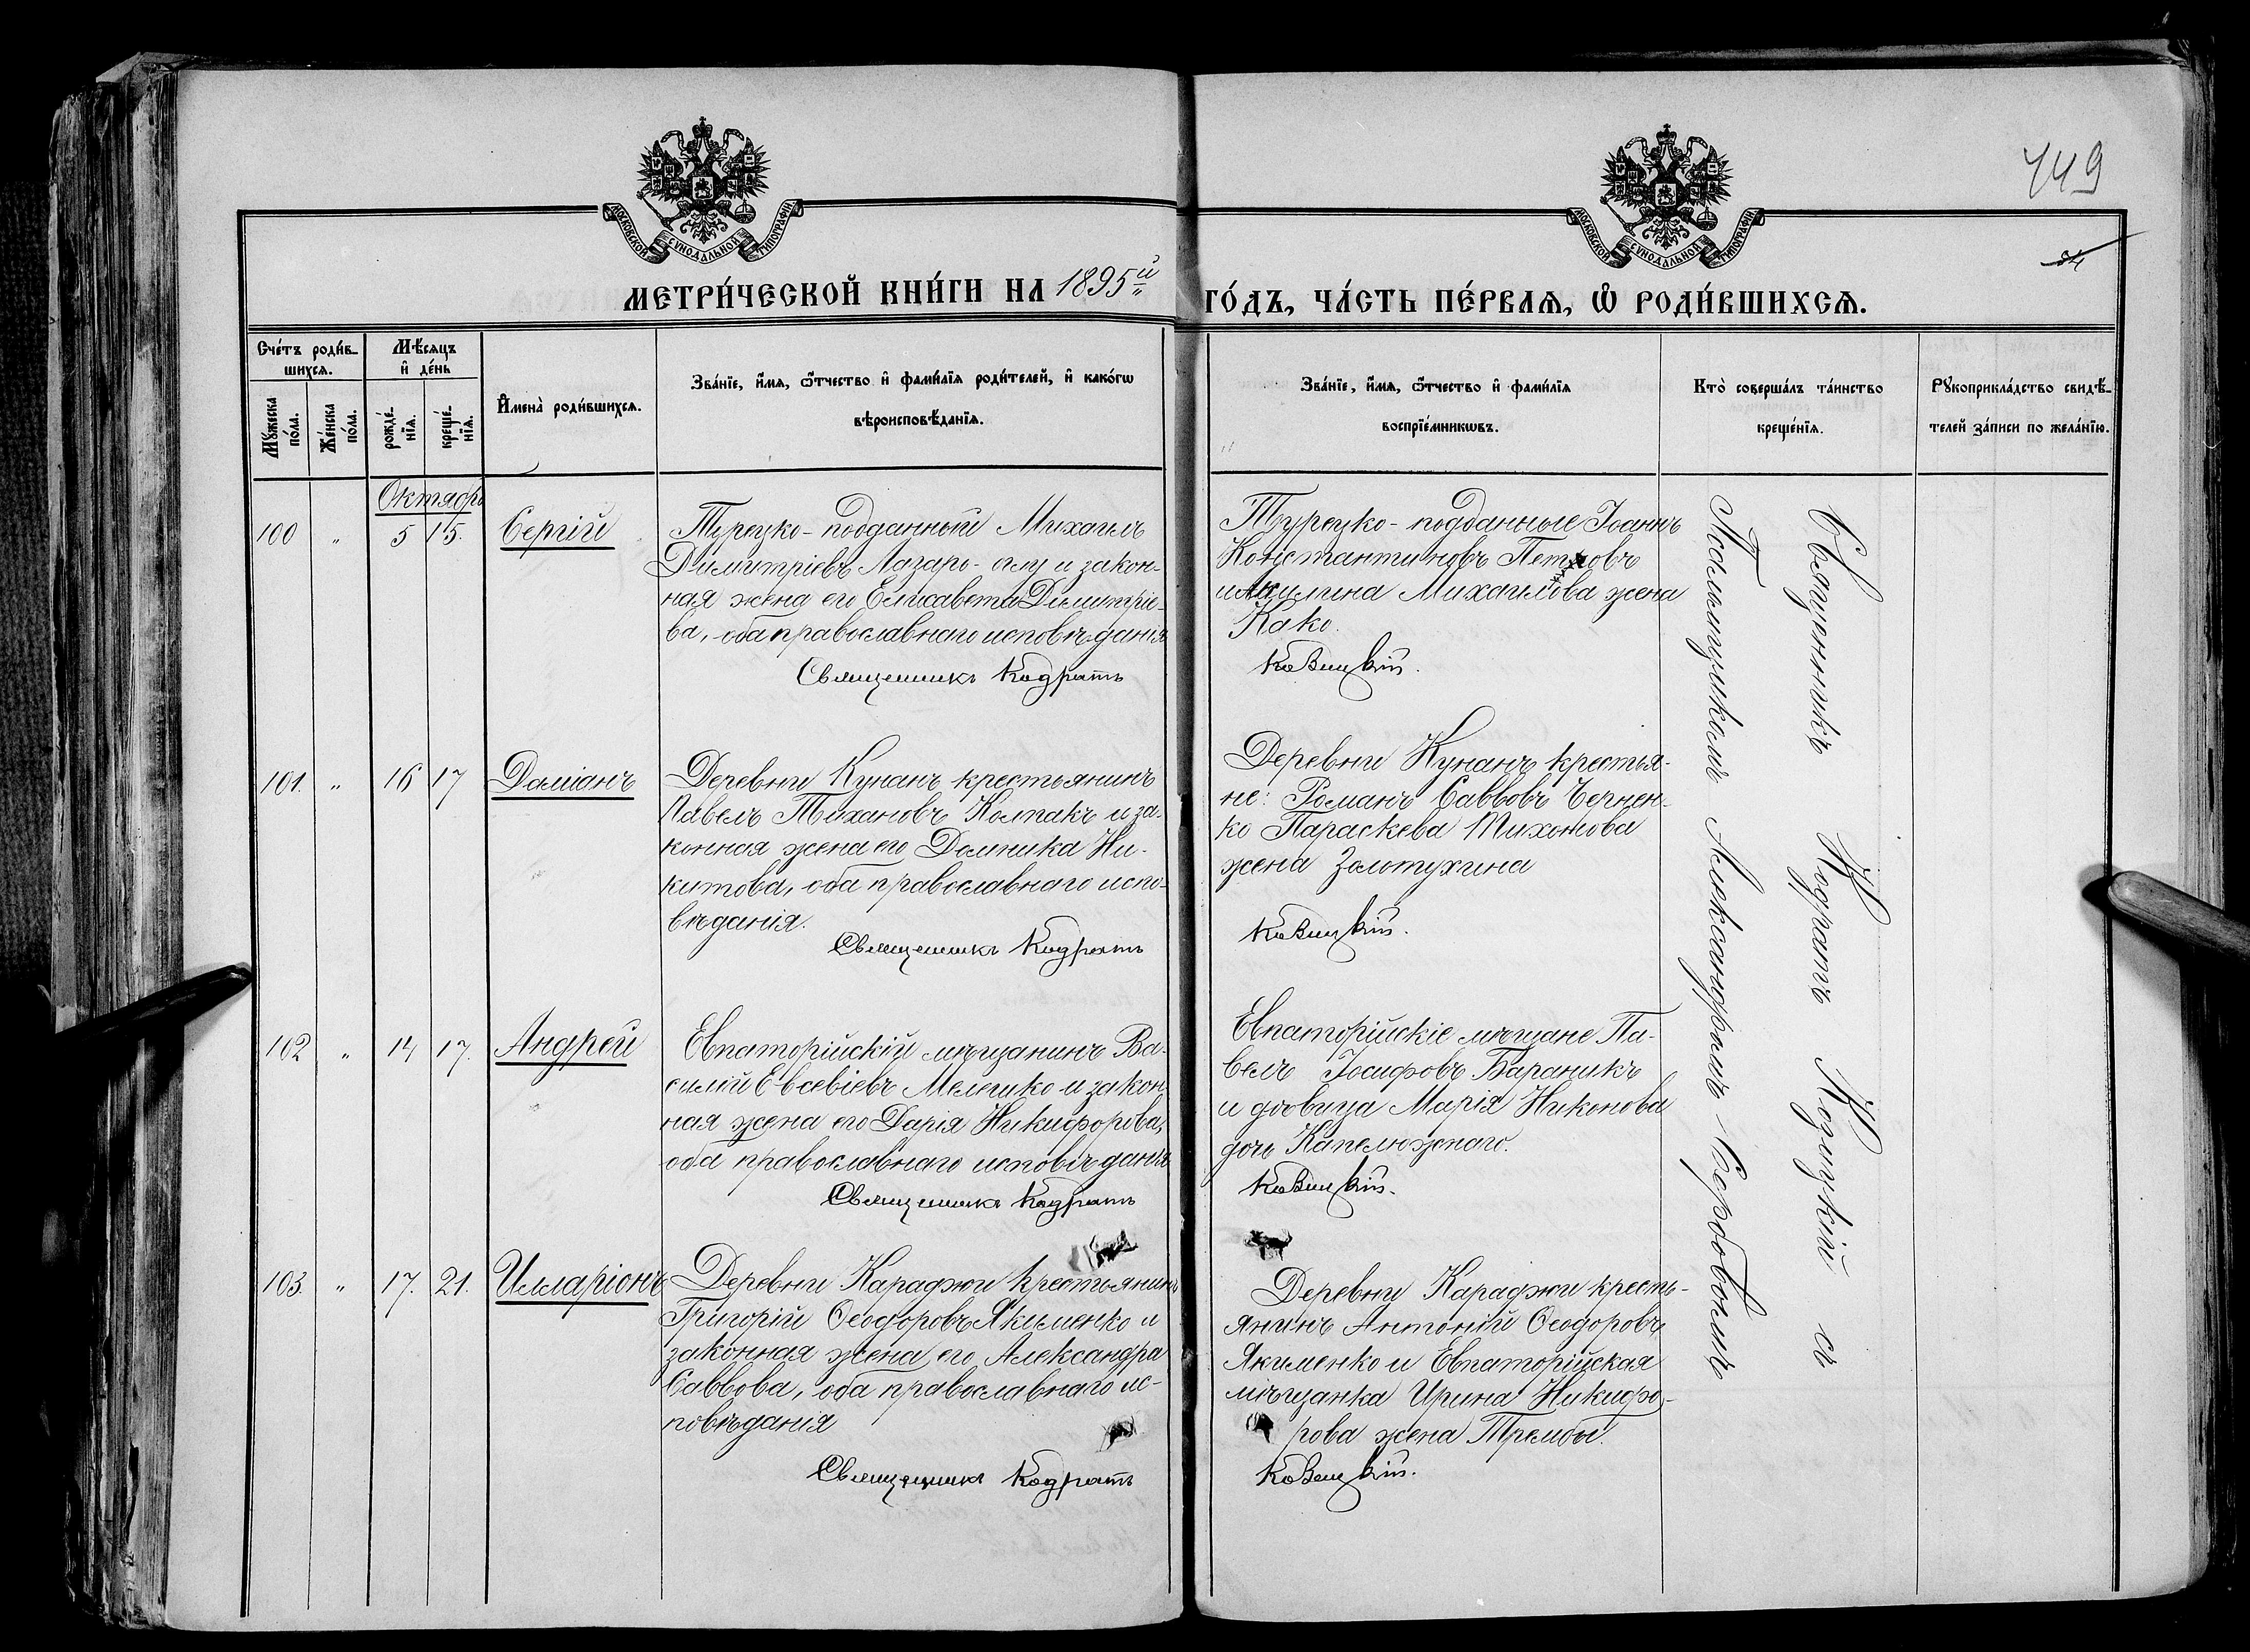 449
84
МОСКОВСКОЙ СУНОДАЛЬНОЙ ТИПОГРАФИИ
МОСКОВСКОЙ СУНОДАЛЬНОЙ ТИПОГРАФИИ
МЕТРИ́ЧЕСКОЙ КНИ́ГИ НА 1895й ГО́ДЪ, ЧА́СТЬ ПЕ́РВАѦ, Ѡ҆ РОДИ́ВШИХСѦ.
Сче́тъ роди́в-
шихсѧ.
Мꙋ́жеска по́ла.
Же́нска по́ла.
Мѣ́сѧцъ
и҆ де́нь
рожде́-
нїѧ.
креще́-
нїѧ.
И҆мена̀ роди́вшихсѧ.
Зва́нїе, и҆́мѧ, ѻ҆́тчество и҆ фамі́лїѧ роди́телей, и҆ како́гѡ
вѣроисповѣ́данїѧ.
Зва́нїе, и҆́мѧ, ѻ҆́тчество и҆ фамі́лїѧ
воспрїе́мникѡвъ.
Кто̀ соверша́лъ та́инство
креще́нїѧ.
Рꙋкоприкла́дство свидѣ́-
телей за́писи по жела́нїю.
Октябрь
100 " 5 15. Сергій
Турецко-подданный Михаилъ
Димитріевъ Лазарь-оглу и закон-
ная жена его Елисавета Димитріе-
ва, оба православнаго исповѣданія
Священникъ Кодратъ
Турецко-подданные Іоаннъ
Константиновъ Петковъ
и Акилина Михаилова жена
Како.
Козицкій.
101. " 16 17 Даміанъ
Деревни Кунанъ крестьянинъ
Павелъ Тихановъ Колпакъ и за-
конная жена его Домника Ни-
китова, оба православнаго испо-
вѣданія.
Священникъ Кодратъ
Деревни Кунанъ крестья-
не: Романъ Саввовъ Чернен-
ко Параскева Тихонова
жена Золотухина
Козицкій.
102 " 14 17. Андрей
Евпаторійскій мѣщанинъ Ва-
силій Евсевіевъ Мелешко и закон-
ная жена его Дарія Никифорова,
оба православнаго исповѣданія
Священникъ Кодратъ
Евпаторійскіе мѣщане Па-
велъ Іосифовъ Бараникъ
и дѣвица Марія Никонова
дочь Капелюжнаго.
Козицкій.
103. " 17. 21. Илларіонъ
Деревни Караджи крестьянинъ
Григорій Ѳеодоровъ Якименко и
законная жена его Александра
Саввова, оба православнаго ис-
повѣданія
Священникъ Кодратъ
Деревни Караджи кресть-
янинъ Антоній Ѳеодоровъ
Якименко и Евпаторійская
мѣщанка Ирина Никифо-
рова жена Трембы.
Козицкій.
Священникъ Кодратъ Козицкій съ
Псаломщикомъ Александромъ Сердобовымъ